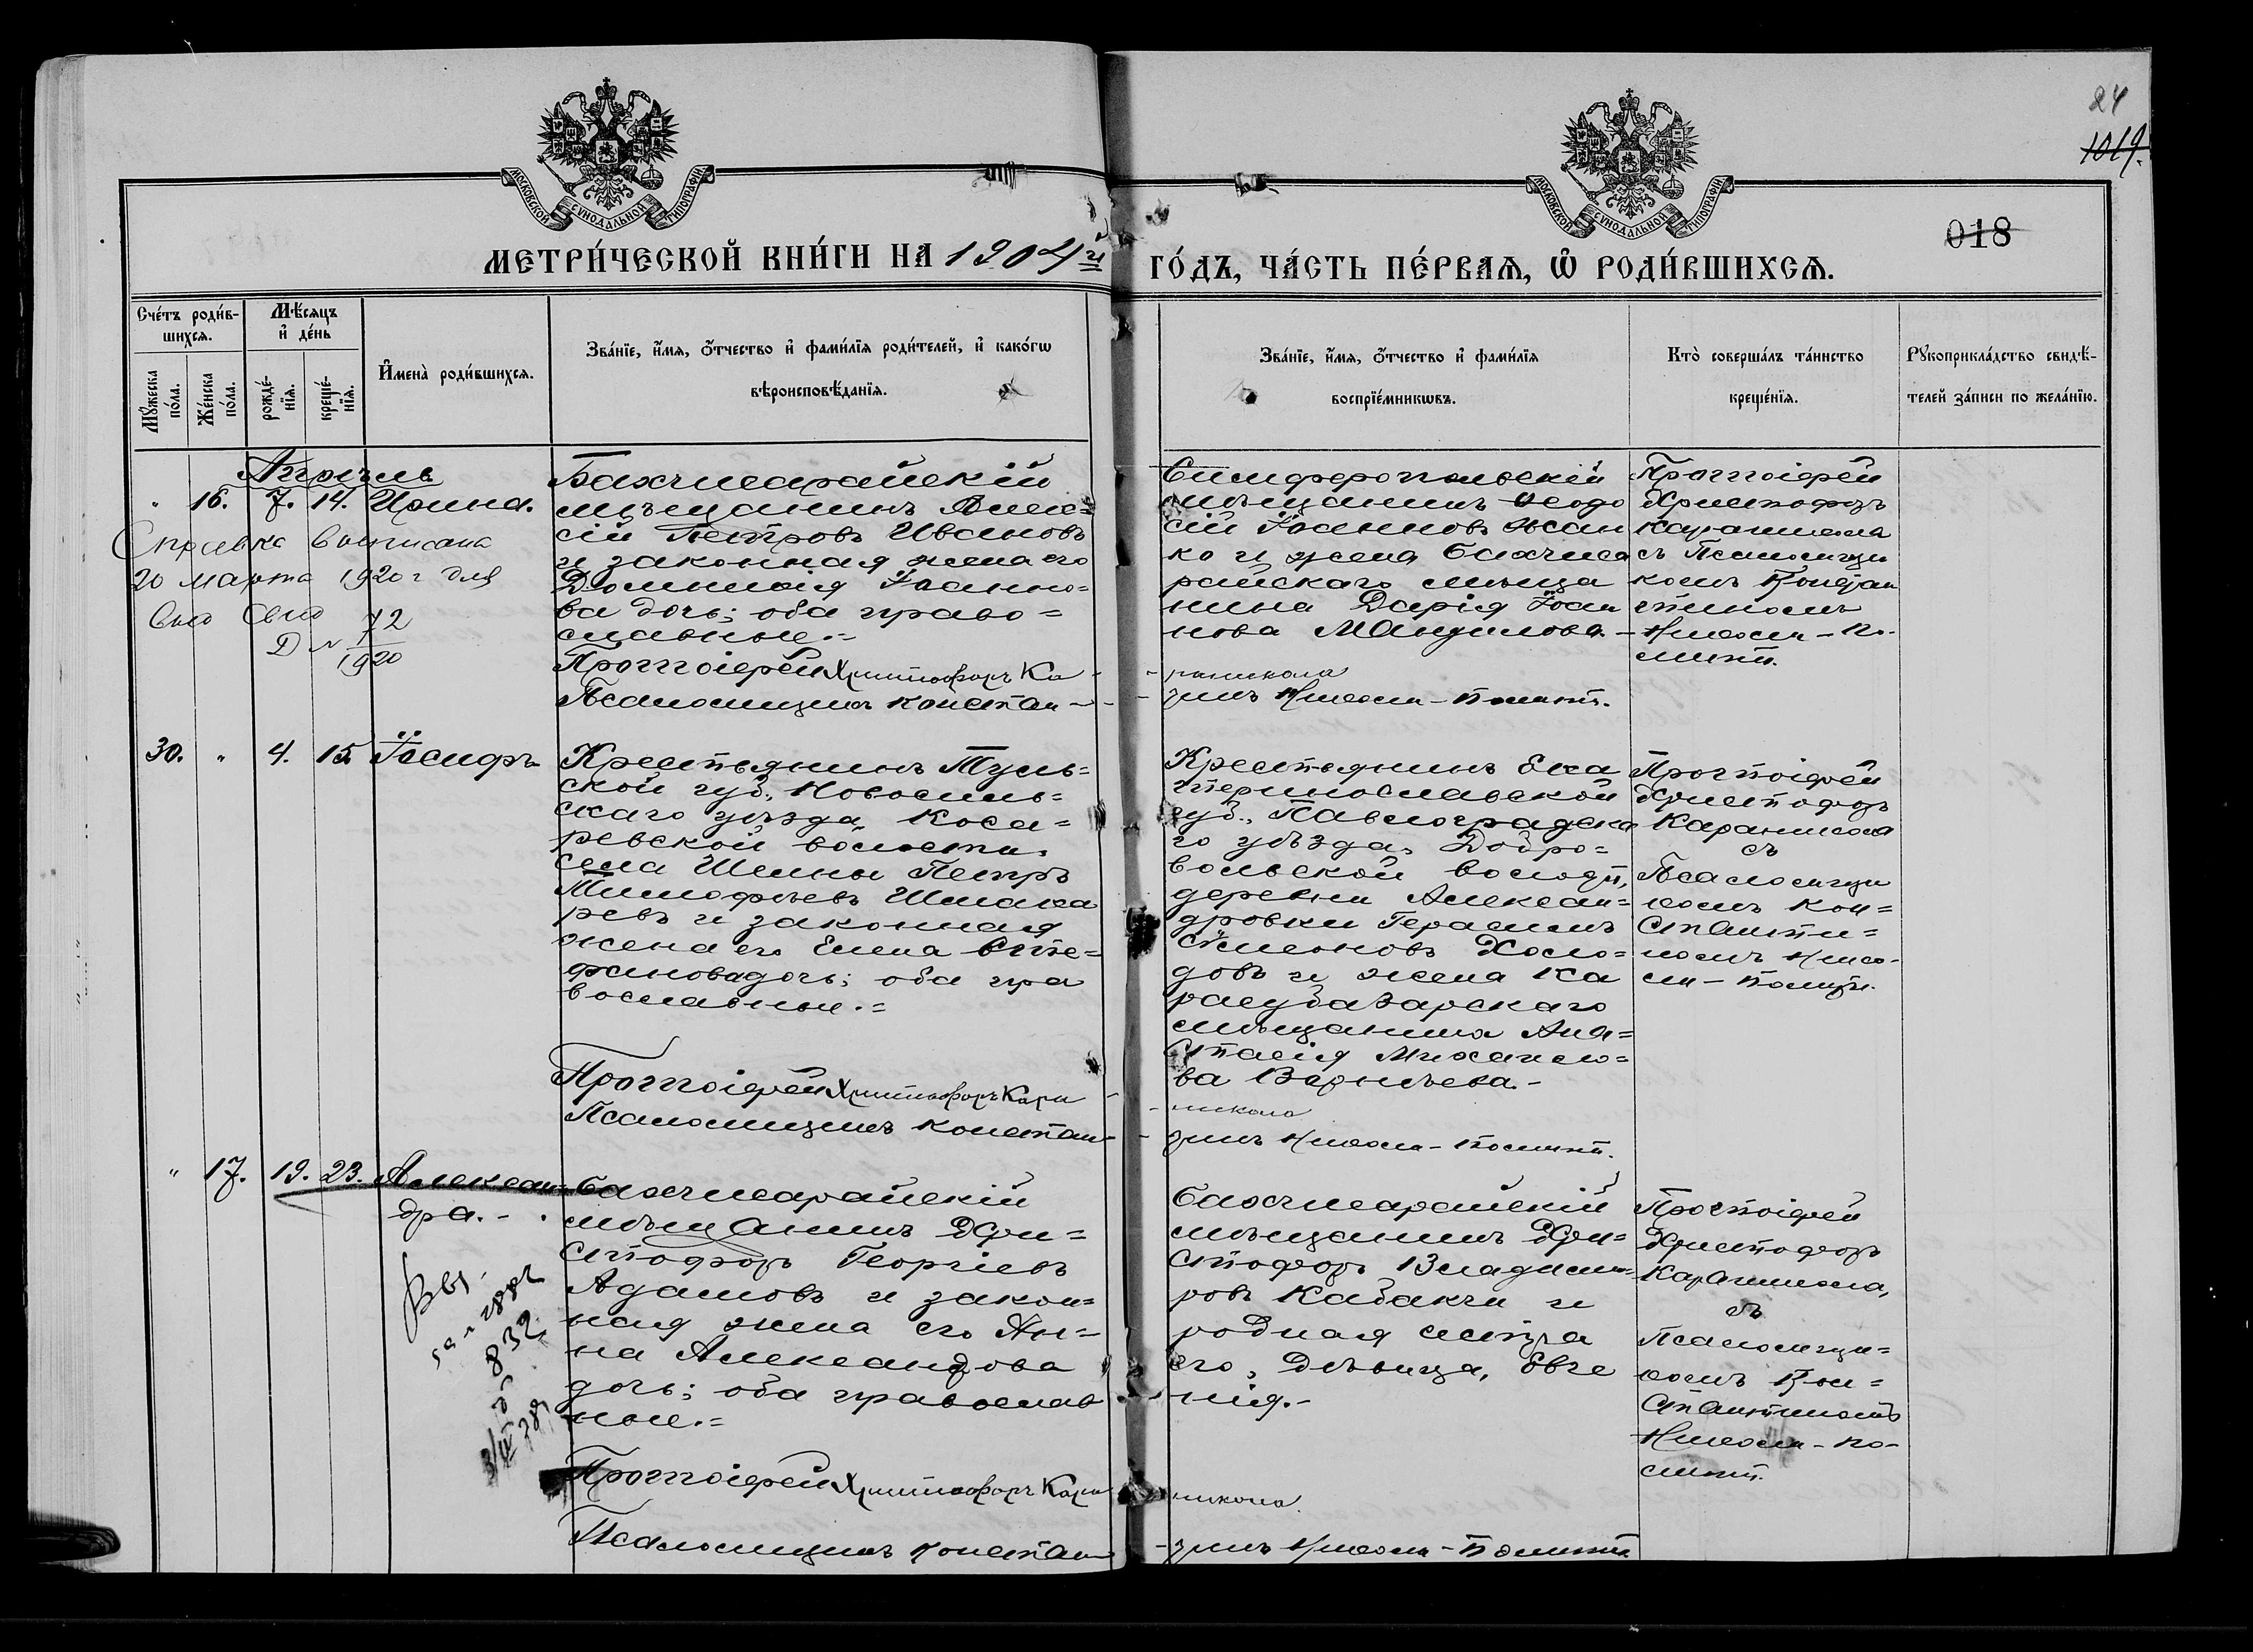 24
1019.
018
МОСКОВСКОЙ СУНОДАЛЬНОЙ ТИПОГРАФІИ
МОСКОВСКОЙ СУНОДАЛЬНОЙ ТИПОГРАФІИ
МЕТРИ́ЧЕСКОЙ КНИ́ГИ НА 1904й
ГО́ДЪ, ЧА́СТЬ ПЕ́РВАѦ, Ѡ РОДИ́ВШИХСѦ.
Сче́тъ роди́в-
шихсѧ.
Мꙋ́жеска
по́ла.
Же́нска
по́ла.
Мѣ́сяцъ
и҆ де́нь
рожде́-
нїѧ.
креще́-
нїѧ.
И҆мена̀ роди́вшихсѧ.
Зва́нїе, и҆́мѧ, ѻ҆́тчество и҆ фами́лїѧ роди́телей, и҆ како́гѡ
вѣроисповѣ́данїѧ.
Зва́нїе, и҆́мѧ, ѻ҆́тчество и҆ фами́лїѧ
воспрїе́мникѡвъ.
Кто̀ соверша́лъ та́инство
креще́нїѧ.
Рꙋкоприкла́дство свидѣ́-
телей за́писи по жела́нїю.
Апрѣль
" 16. 7. 14. Ирина.
Справка выписана
20 марта 1920 г для
72
1920
Бахчисарайскій
мѣщанинъ
сій Петровъ Ивановъ
и законная жена его
Домникія Іоанно=
ва дочь; оба право=
славные.=
Протоіерей Христофоръ Ка-
-раникола
Псаломщикъ Констан-
-тинъ Николи-Политт.
Симферопольскій
мѣщанинъ Ѳеодо
сій Іоанновъ
ко и жена бахчиса
райскаго мѣща
нина Дарія Іоан
нова Мандилова.-
Протоіерей
Христофоръ
Караникола
съ Псаломщи
комъ Констан
тиномъ
Николи-По-
литти.
30. " 4. 15 Іосифъ
Крестьянинъ Туль=
ской губ., Новосиль=
скаго уѣзда, Коса=
ревской волости,
села Шейны Петръ
Тимофѣевъ Шмака
ревъ и законная
жена его Елена Сте=
фанова дочь; оба пра
вославные.=
Протоіерей Христофоръ Кара-
-никола
Псаломщикъ Констан-
-тинъ Николи-Политт.
Крестьянинъ Ека
теринославской
губ., Павлоградска
го уѣзда, Добро=
вольской волости,
деревни Александ=
дровки Герасимъ
Симеоновъ Холо=
довъ и жена Ка
расубазарскаго
мѣщанина Ана=
стасія Михайло=
ва
Протоіерей
Христофоръ
Караникола
съ
Псаломщи
комъ Кон=
станти=
номъ Нико-
ли-Политт.
" 17. 19. 23. Алексан=
дра.-
832
Бахчисарайскій
мѣщанинъ Хри=
стофоръ Георгіевъ
Адамовъ и закон=
ная жена его Ан=
на Александрова
дочь; оба православ
ные.=
Протоіерей Христофоръ Кара
никола.
Псаломщикъ Констан
-тинъ Николи-Политт
Бахчисарайскій
мѣщанинъ Хри=
стофоръ Владими=
ровъ Кабакчи и
родная сестра
его, дѣвица, Евге
нія.-
Протоіерей
Христофоръ
Караникола,
съ
Псаломщи=
комъ Кон=
стантиномъ
Николи-По-
литт.